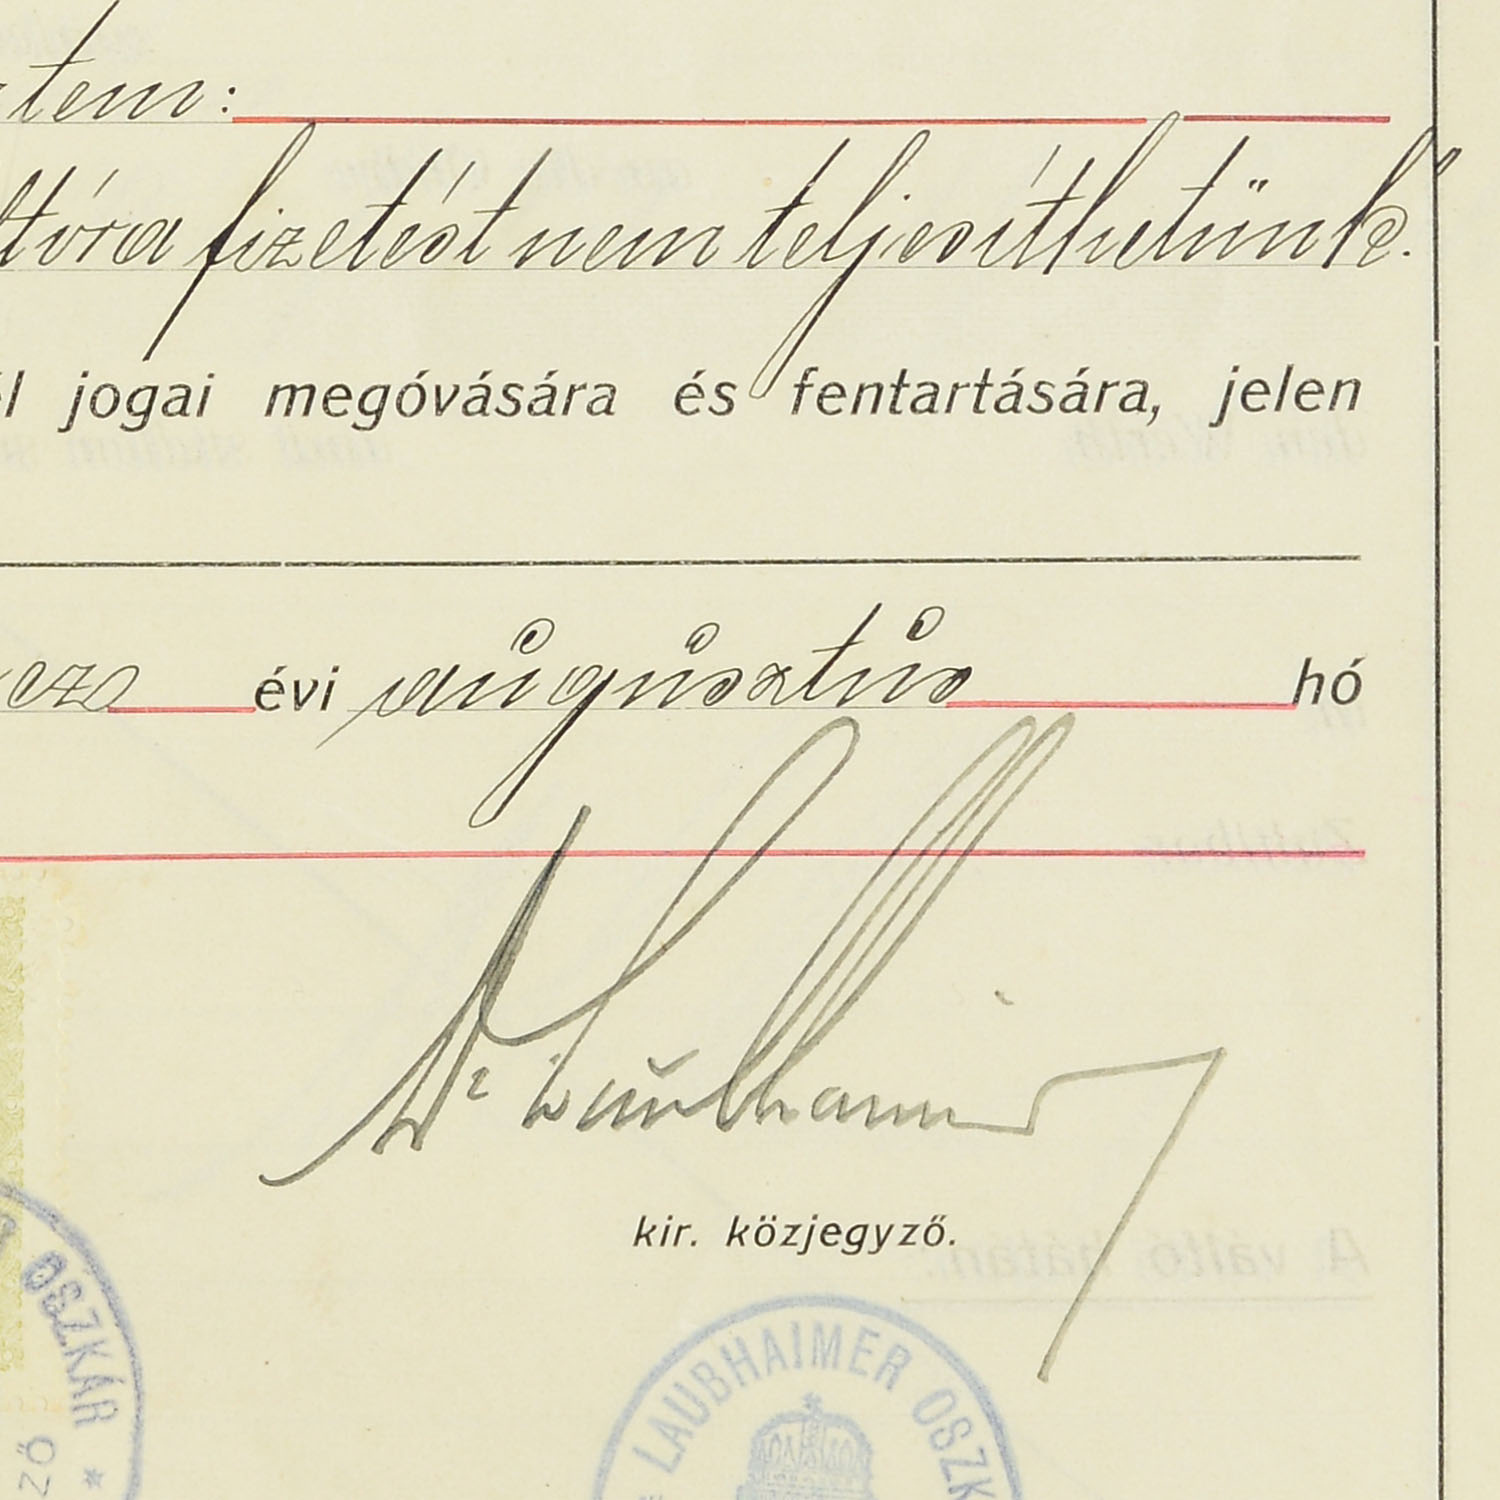 tem:
fizetést nem teljesíthetünk."
jogai megóvására és fentartására, jelen
évi augusztus hó
Dr Laubhaimer
kir. közjegyző.
OSZKÁR *
LAUBHAIMER OSZK
A váltó hátán: